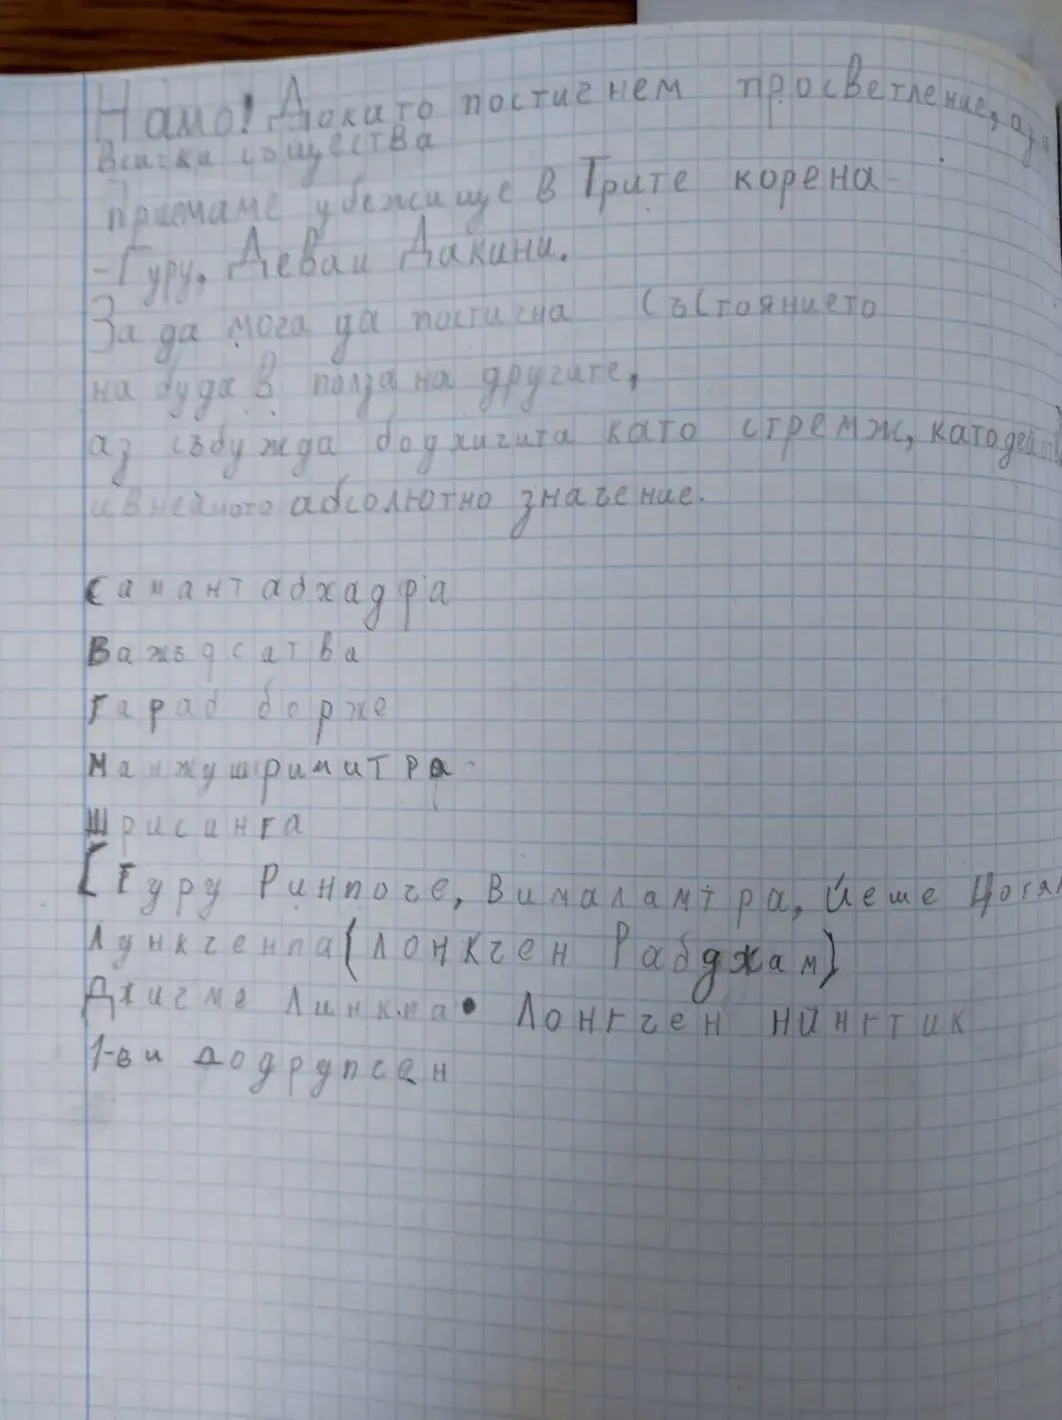 Намо! Докато постигнем просветление, аз и
всички същества
Приемаме убежище в Трите корена
- Гуру, Деваи Дакини.
За да мога да постигна състоянието
на буда в полза на другите,
аз събужда бодхичита като стремж, като
абсолютно значение.
Самантабхадра
Важъдсатва
Гараб борже
Манжушримитра
Шрисинга
[Гуру Ринпоче, Вималамтра, Йеше Цогял
Лункченпа (Лонкчен Рабджам)
Джигме Линкпа • Лонгчен нингтик
1-ви додрупсен